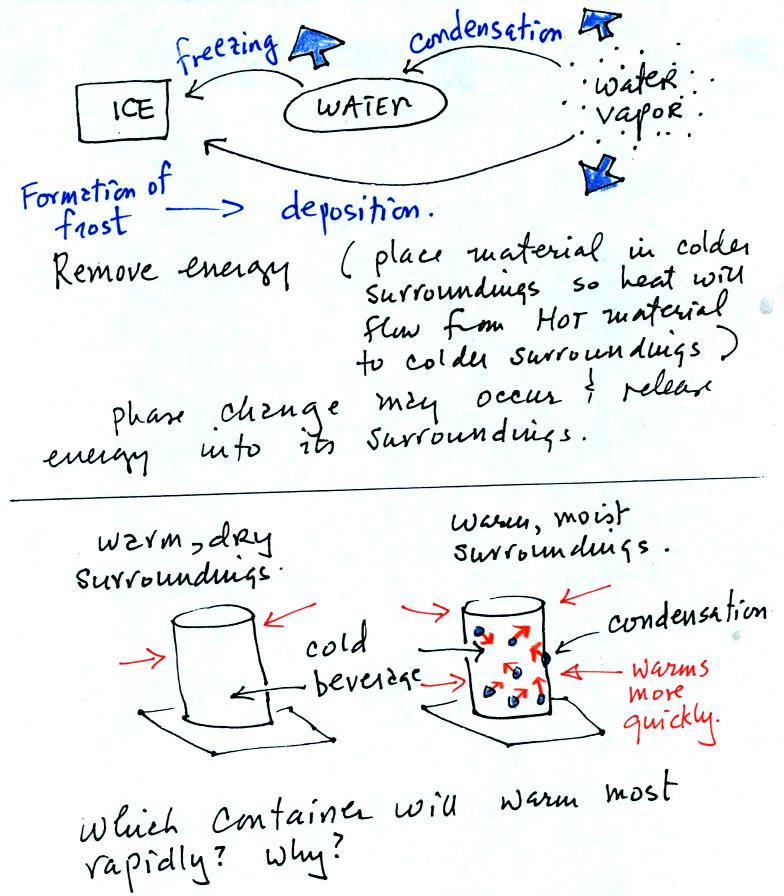 freezing
condensation
ICE
WATER
water
vapor
Formation of
frost
deposition.
Remove energy (place material in colder
surroundings so heat will
flow from HOT material
to colder surroundings)
phase change may occur & release
energy into its surroundings.
warm, dry
surroundings.
warm, moist
surroundings.
cold
beverage
condensation
warms
more
quickly.
Which container will warm most
rapidly? Why?